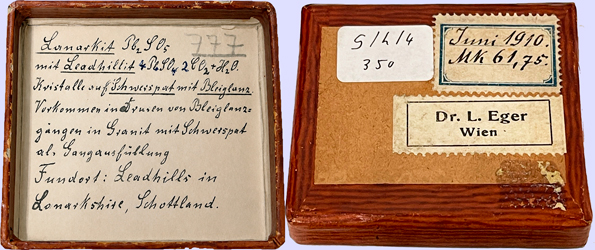 Lanarkit Pb₂SO₅ 777
mit Leadhillit 4PbSO₄ 2CO₂+H₂O.
Kristalle auf Schwerspat mit Bleiglanz.
Vorkommen in Drusen von Bleiglanz-
gängen in Granit mit Schwerspat
als Gangausfüllung
Fundort: Leadhills in
Lanarkshire, Schottland.
G/L/4
350
Juni 1910.
MK 61,75
Dr. L. Eger
Wien